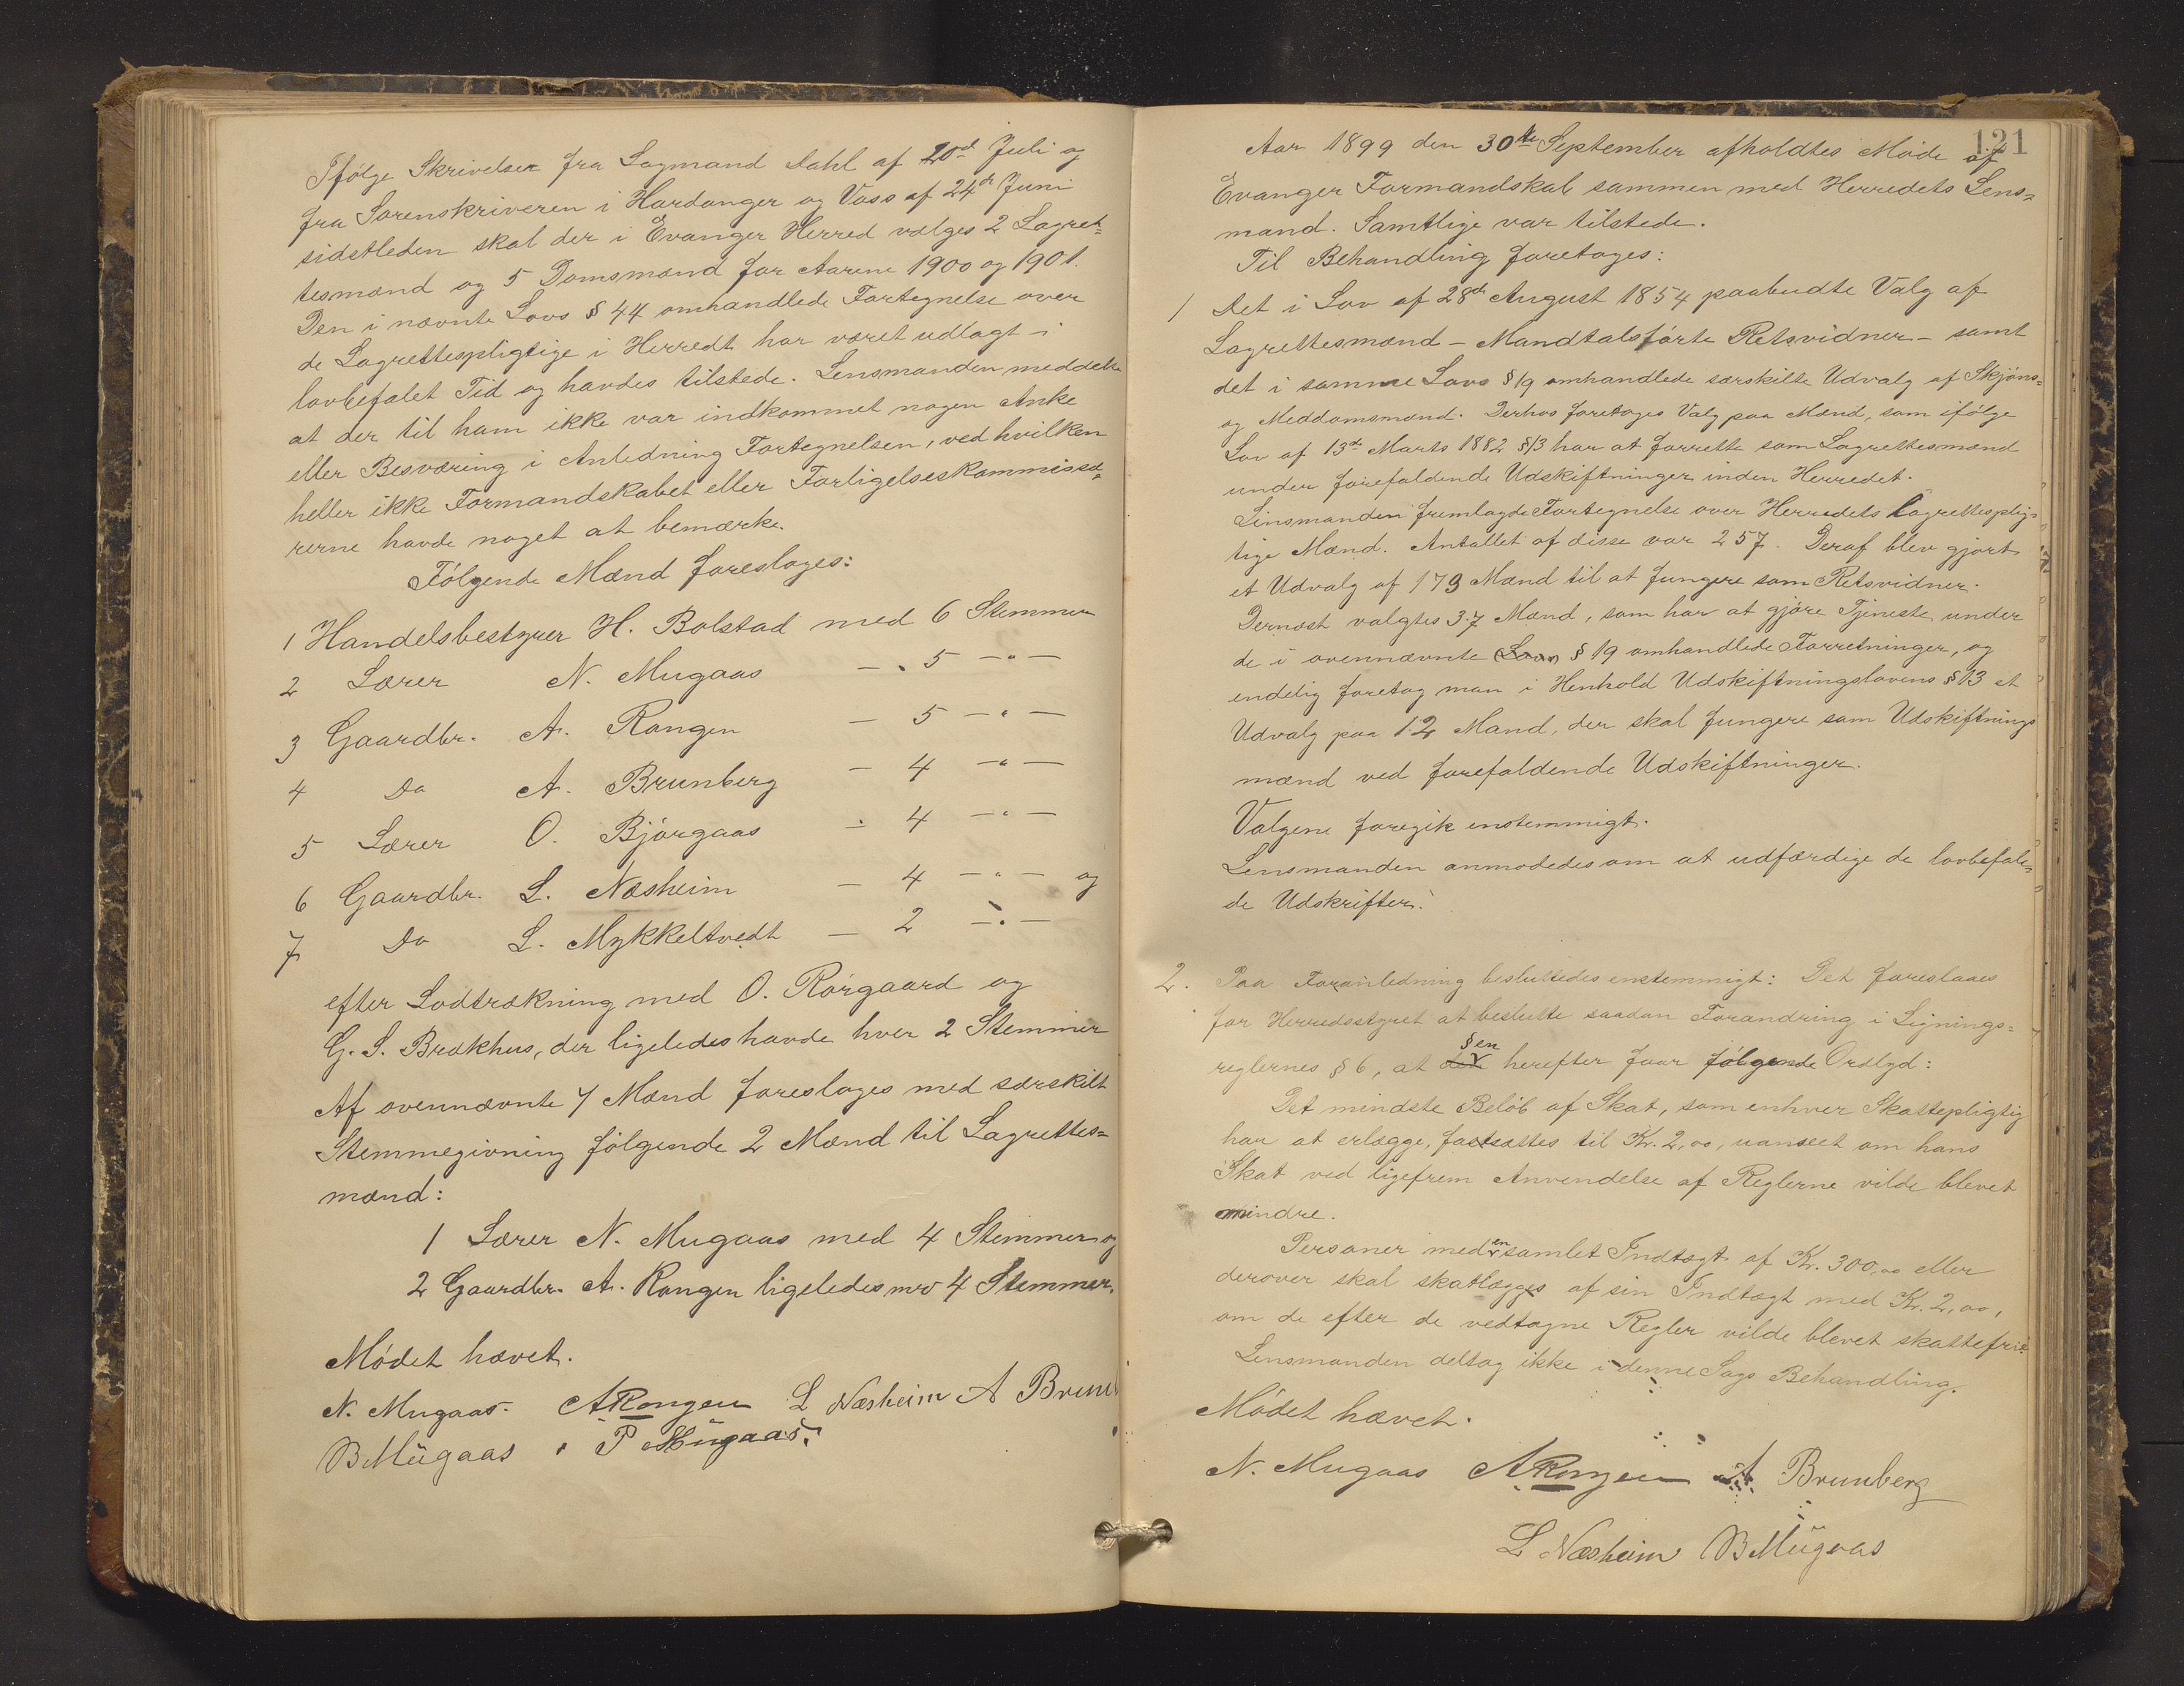 Ifølge Skrivelser fra Lagmand Dahl af 20de Juli og
fra Sorenskriveren i Hardanger og Voss af 24de Juni
sidstleden skal der i Evanger Herred vælges 2 Lagret=
tesmænd og 5 Domsmænd for Aarene 1900 og 1901.
Den i nævnte Lovs § 44 omhandlede Fortegnelse over
de Lagrettespligtige i Herredt har været udlagt i
lovbefalet Tid og havdes tilstede. Lensmanden meddelte
at der til ham ikke var indkommet nogen Anke
eller Besværing i Anledning Fortegnelsen, ved hvilken
heller ikke Formandskabet eller Forligelseskommissæ=
rerne havde noget at bemærke.
Følgende Mænd foresloges:
1 Handelsbestyrer H. Bolstad med 6 Stemmer
2 Lærer N. Mugaas — " 5 — " —
3 Gaardbr. A. Rongen — 5 — " —
4 Do A. Brunberg — 4 — " —
5 Lærer O. Bjørgaas — 4 — " —
6 Gaardbr. L. Næsheim — 4 — " — og
7 Do L. Mykkeltvedt — 2 — " —
efter Lodtrækning med O. Rørgaard og
G. S. Brækhus, der ligeledes havde hver 2 Stemmer
Af ovennævnte 7 Mænd foresloges med særskilt
Stemmegivning følgende 2 Mænd til Lagrettes=
mænd:
1 Lærer N. Mugaas med 4 Stemmer og
2 Gaardbr. A. Rongen ligeledes med 4 Stemmer.
Mødet hævet.
N. Mugaas. A Rongen L Næsheim A Brun
B Mügaas P Mügaas.
121
Aar 1899 den 30te September afholdtes Møde af
Evanger Formandskab sammen med Herredets Lens=
mand. Samtlige var tilstede.
Til Behandling foretoges:
1 Det i Lov af 28de August 1854 paabudte Valg af
Lagrettesmænd – Mandtalsførte Retsvidner – samt
det i samme Lovs § 19 omhandlede særskilte Udvalg af Skjøns=
og Meddomsmænd. Derhos foretoges Valg paa Mænd, som ifølge
Lov af 13de Marts 1882 § 13 har at forrette som Lagrettesmænd
under forefaldende Udskiftninger inden Herredet.
Linsmanden fremlagde Fortegnelse over Herredets Lagrettesplig=
tige Mænd. Antallet af disse var 257. Deraf blev gjort
et Udvalg af 173 Mænd til at fungere som Retsvidner.
Dernæst valgtes 37 Mænd, som har at gjøre Tjeneste under
de i ovennævnte Lovs § 19 omhandlede Forretninger, og
endelig foretog man i Henhold Udskiftningslovens § 13 et
Udvalg paa 12 Mænd, der skal fungere som Udskiftnings
mænd ved forefaldende Udskiftninger.
Valgene foregik enstemmigt.
Lensmanden anmodedes om at udfærdige de lovbefale=
de Udskrifter.
2. Paa Foranledning besluttedes enstemmigt: Det foreslaaes
for Herredsstyret at beslutte saadan Forandring i Lignings=
reglernes § 6, at §en herefter faar følgende Ordlyd:
Det mindste Beløb af Skat, som enhver Skattepligtig
har at erlægge, fastsættes til Kr. 2,00, uanseet om hans
Skat ved ligefrem Anvendelse af Reglerne vilde blevet
mindre.
Personer med en samlet Indtægt af Kr. 300,00 eller
derover skal skatlægges af sin Indtægt med Kr. 2,00,
om de efter de vedtagne Regler vilde blevet skattefrie.
Lensmanden deltog ikke i denne Sags Behandling.
Mødet hævet.
N. Mugaas A Rongen A Brunberg
L Næsheim B Mügaas